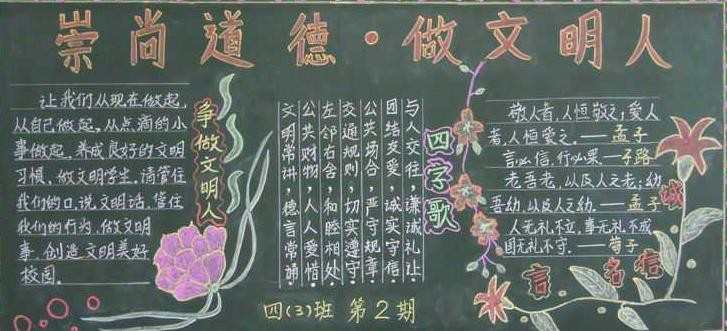 崇尚道德·做文明人
让我们从现在做起,
从自己做起,从点滴的小
事做起,养成良好的文明
习惯,做文明学生。请管住
我们的口,说文明话,管住
我们的行为,做文明
事,创造文明美好
校园。
争做文明人
四字歌
与人交往,谦诚礼让.
团结友爱,诚实守信.
公共场合,严守规章.
交通规则,切实遵守.
左邻右舍,和睦相处.
公共财物,人人爱惜.
文明常讲,德言常诵.
敬人者,人恒敬之;爱人
者,人恒爱之.——孟子
言必信,行必果——子路
老吾老,以及人之老;幼
吾幼,以及人之幼.——孟子
人无礼不立,事无礼不成
国无礼不守.——荀子
诚信名言
四(3)班 第2期